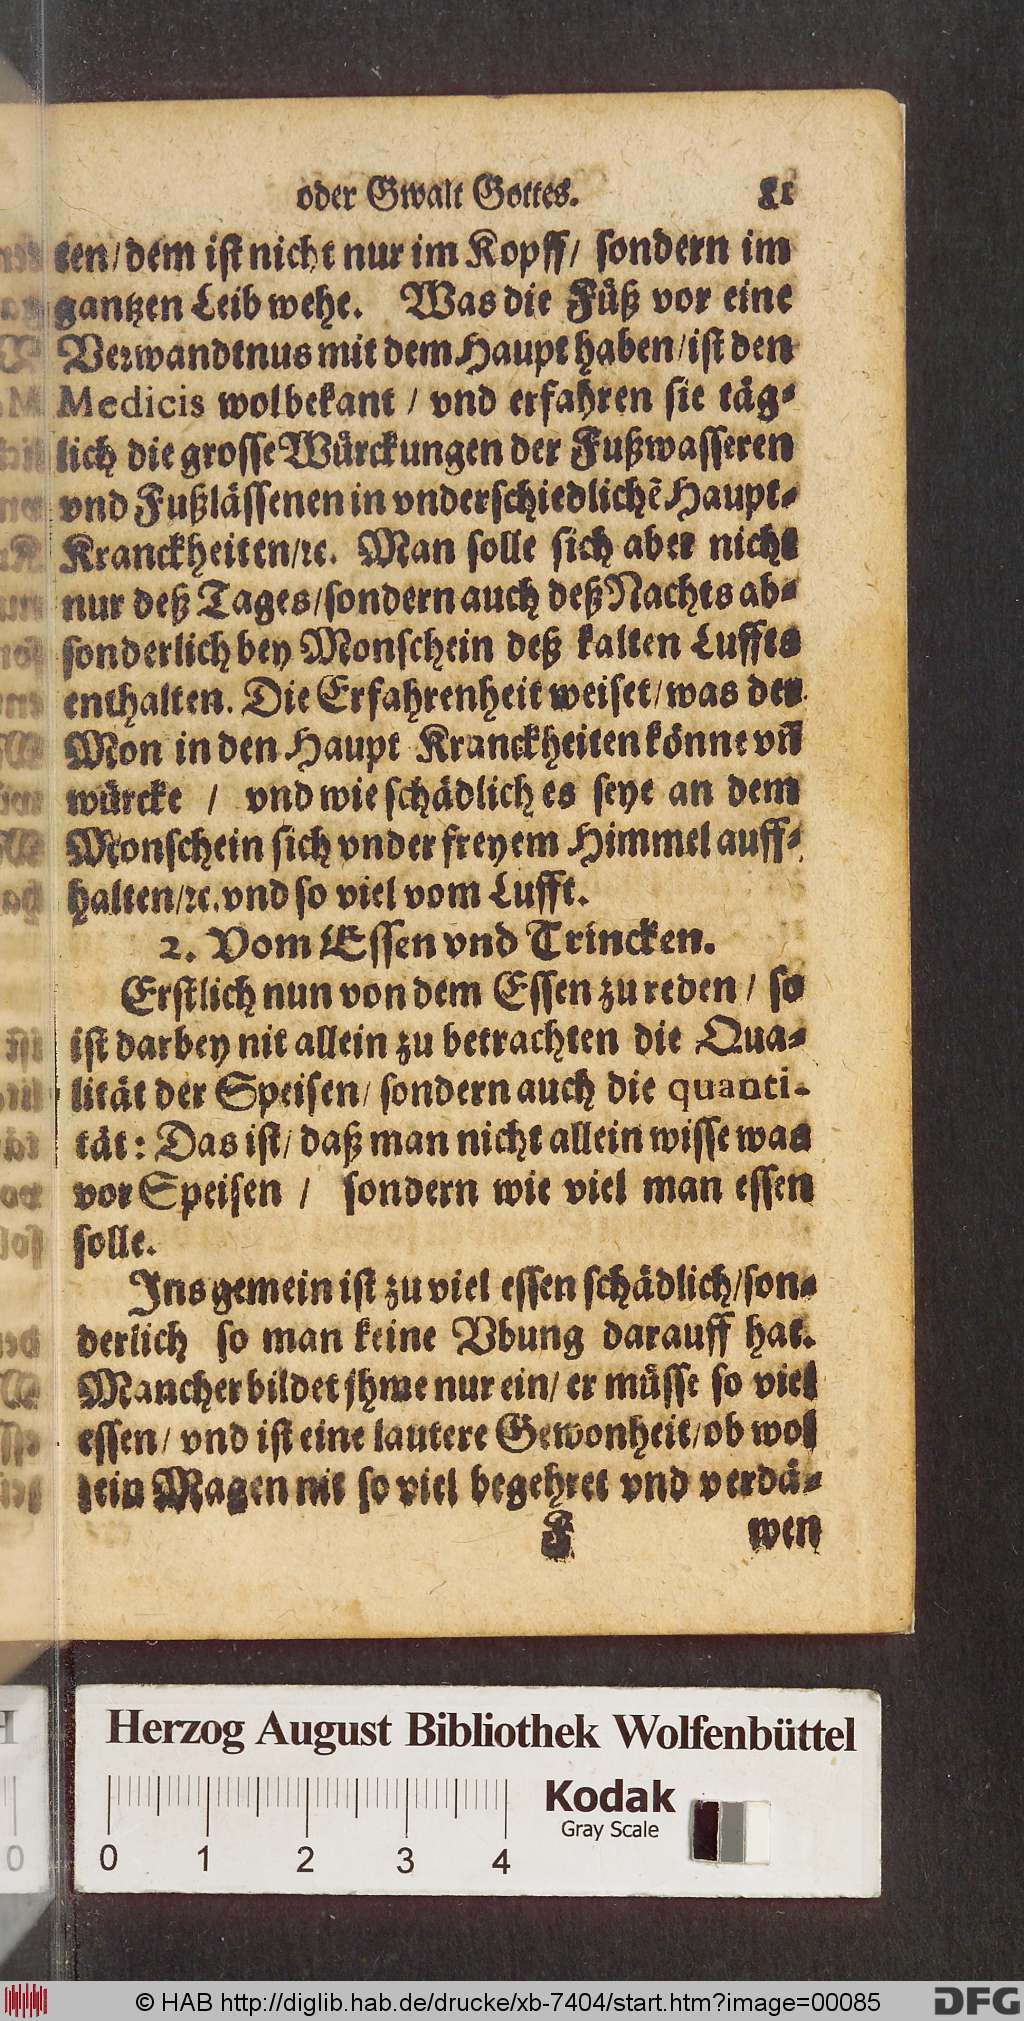 oder Gwalt Gottes. 81
ten/dem ist nicht nur im Kopff/ sondern im
gantzen Leib wehe. Was die Füß vor eine
Verwandtnus mit dem Haupt haben/ist den
Medicis wolbekant / vnd erfahren sie täg-
lich die grosse Würckungen der Fußwasseren
vnd Fußlässenen in vnderschiedlichē Haupt-
Kranckheiten/ꝛc. Man solle sich aber nicht
nur deß Tages/sondern auch deß Nachts ab-
sonderlich bey Monschein deß kalten Luffts
enthalten. Die Erfahrenheit weiset/was der
Mon in den Haupt Kranckheiten könne vñ
würcke / vnd wie schädlich es seye an dem
Monschein sich vnder freyem Himmel auff-
halten/ꝛc. vnd so viel vom Lufft.
2. Vom Essen vnd Trincken.
Erstlich nun von dem Essen zu reden / so
ist darbey nit allein zu betrachten die Qua-
lität der Speisen/ sondern auch die quanti-
tät: Das ist/ daß man nicht allein wisse was
vor Speisen / sondern wie viel man essen
solle.
Ins gemein ist zu viel essen schädlich/son-
derlich so man keine Vbung darauff hat.
Mancher bildet jhme nur ein/ er müsse so viel
essen/ vnd ist eine lautere Gewonheit/ob wol
sein Magen nit so viel begehret vnd verdä-
F wen
Herzog August Bibliothek Wolfenbüttel
Kodak
Gray Scale
0 1 2 3 4
© HAB http://diglib.hab.de/drucke/xb-7404/start.htm?image=00085
DFG